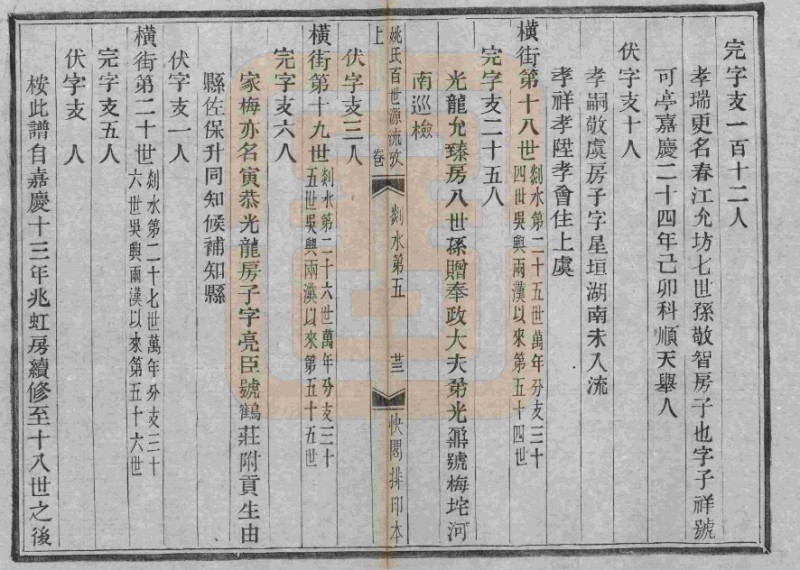 完字支一百十二人
孝瑞更名春江允坊七世孫敬智房子也字子祥號
可亭嘉慶二十四年己卯科順天舉人
伏字支十人
孝嗣敬虞房子字星垣湖南未入流
孝祥孝陞孝會住上虞
橫街第十八世剡水第二十五世萬年分支三十
四世吳興兩漢以來第五十四世
完字支二十五人
光龍允臻房八世孫贈奉政大夫弟光鼐號梅垞河
南巡檢
姚氏百世源流攷 卷上 剡水第五 廿三 快閣排印本
伏字支三人
橫街第十九世剡水第二十六世萬年分支三十
五世吳興兩漢以來第五十五世
完字支六人
家梅亦名寅恭光龍房子字亮臣號鶴莊附貢生由
縣佐保升同知候補知縣
伏字支一人
橫街第二十世剡水第二十七世萬年分支三十
六世吳興兩漢以來第五十六世
完字支五人
伏字支 人
桉此譜自嘉慶十三年兆虹房續修至十八世之後